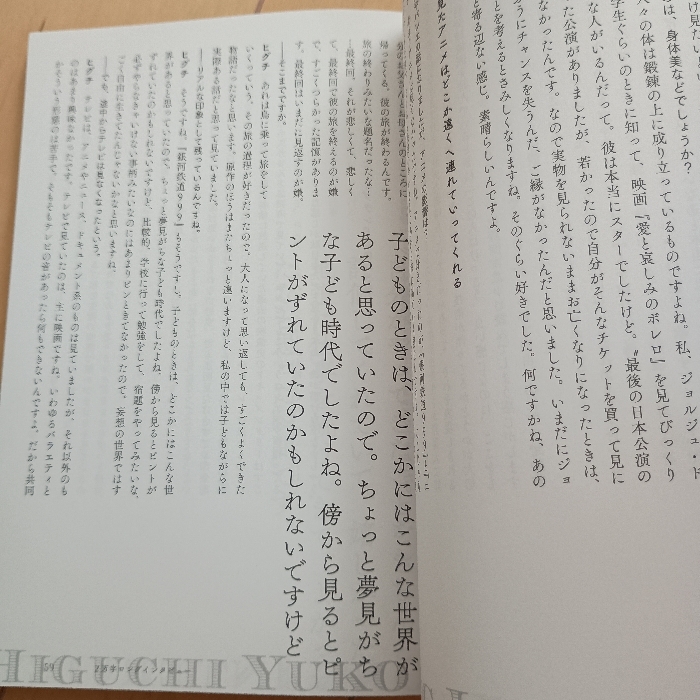 け見た
は、身体美などでしょうか?
人々の体は鍛錬の上に成り立っているものですよね。私、ジョルジュ・ド
学生ぐらいのときに知って、映画『愛と哀しみのボレロ』を見てびっくり
な人がいるんだって。彼は本当にスターでしたけど。〝最後の日本公演の
た公演がありましたが、若かったので自分がそんなチケットを買って見に
なかったんです。なので実物を見られないままお亡くなりになったときは、
うにチャンスを失うんだ、ご縁がなかったんだと思いました。いまだにジョ
とを考えるとさみしくなりますね。そのぐらい好きでした。何ですかね、あの
寄る辺ない感じ。素晴らしいんですよ。
見たアニメはどこか遠くへ連れていってくれる
子どものときは、どこかにはこんな世界が
あると思っていたので。ちょっと夢見がち
な子ども時代でしたよね。傍から見るとピ
ントがずれていたのかもしれないですけど
帰ってくる、彼の旅が終わるんです。
旅の終わりみたいな題名だったな…
…最終回、それが悲しくて、悲しく
て、最終回で彼の旅を終えるのが嫌
で、すごくつらかった記憶がありま
す。最終回はいまだに見返すのが嫌。
――そこまでですか。
ヒグチ　あれは鳥に乗って旅をして
いくっていう、その旅の過程が好きだったので、大人になって思い返しても、すごくよくできた
物語だったなと思います。原作のほうはまたちょっと違いますけど、私の中では子どもながらに
実際ある話だと思って見ていました。
――リアルな印象として残っているんですね。
ヒグチ　そうですね。『銀河鉄道999』もそうですし、子どものときは、どこかにはこんな世
界があると思っていたので。ちょっと夢見がちな子ども時代でしたよね。傍から見るとピントが
ずれていたのかもしれないですけど、比較的、学校に行って勉強をして、宿題をやってみたいな、
必ずやらなきゃいけない事柄みたいなのにはあまりピンときてなかったので、妄想の世界ではす
ごく自由に生きてたんじゃないかなと思いますね。
――でも、途中からテレビは見なくなったという。
ヒグチ　テレビは、アニメやニュース、ドキュメント系のものは見ていましたが、それ以外のも
のはあまり興味なかったです。テレビで見ていたのは、主に映画ですね。いわゆるバラエティと
かそういう刺激のは苦手で。そもそもテレビの音があったら何もできないんですよ。だから共同
59
2万字ロングインタビュー
HIGUCHI YUKO